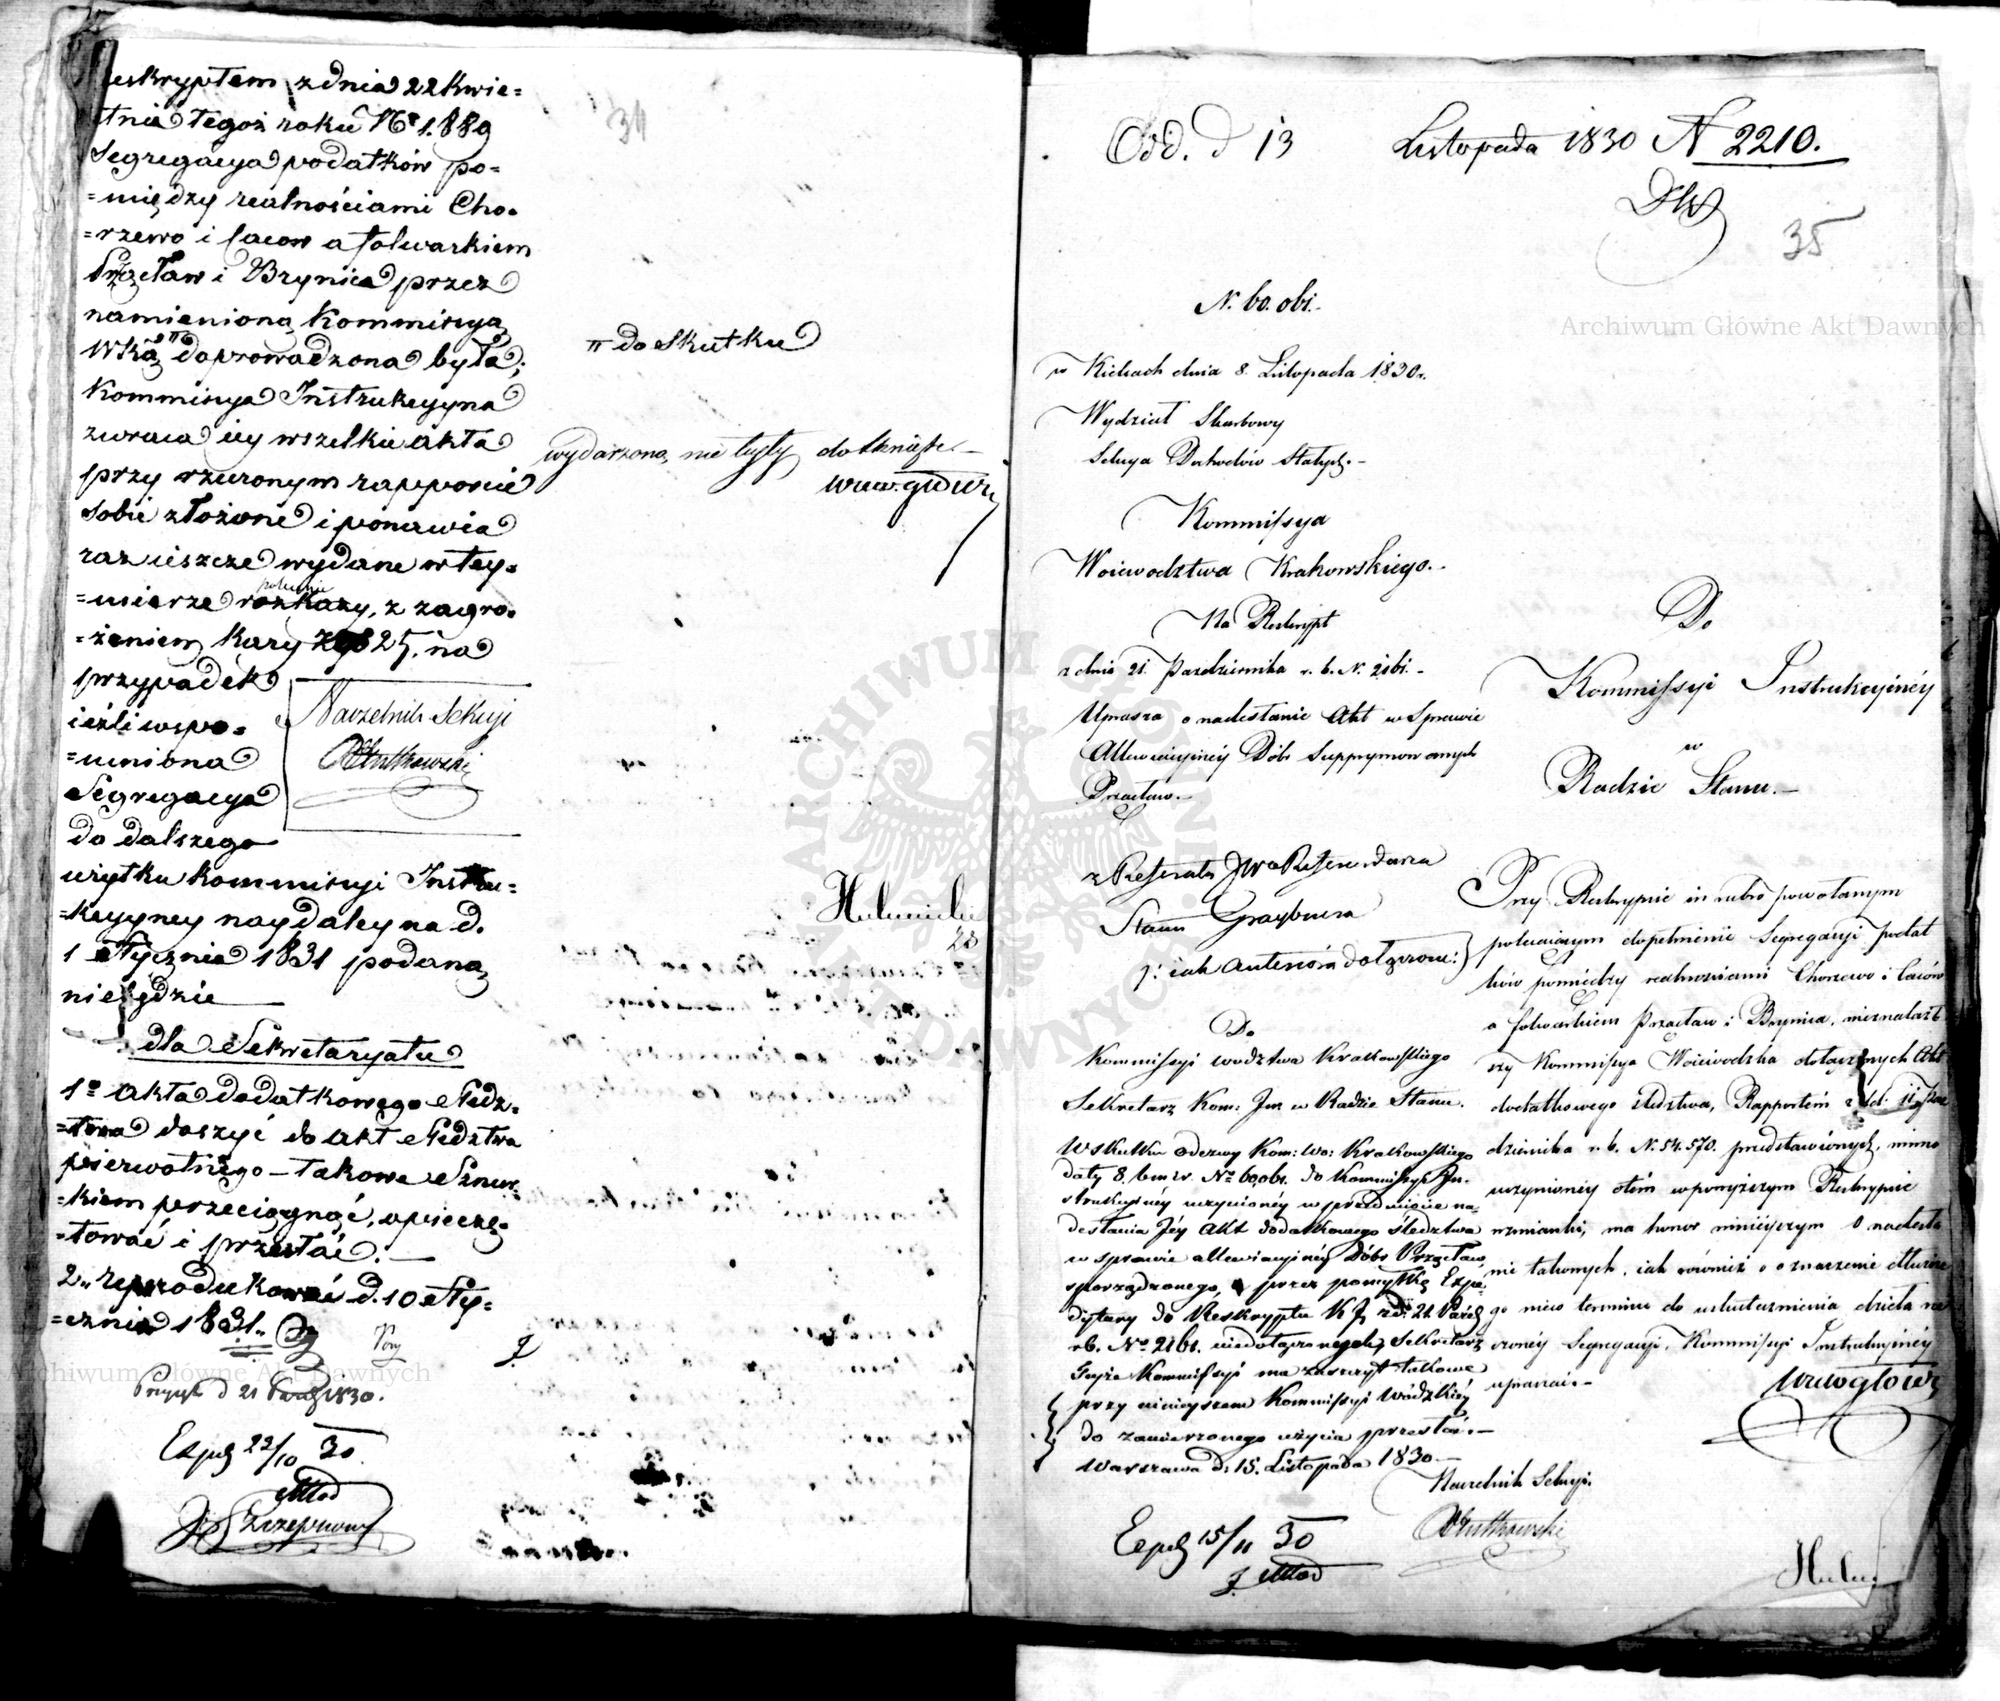 Reskryptem z dnia 22 Kwie=
tnia tegoż roku No 1.889
Segregacya podatków po=
=między realnościami Cho=
=rzewo i Caców a folwarkiem
Przęcław i Brynica przez
namienioną Kommissyą
Wską " doprowadzona była;
Kommissya Instrukcyyna
zwraca iey wszelkie akta
przy rzeczonym rapporcie
sobie złożone i ponawia
raz ieszcze wydane w tey=
polecenie
=mierze rozkazy, z zagro=
=żeniem kary 25, na
przypadek
ieżli wspo=
=mniona
Segregacya
do dalszego
użytku Kommissyi Instru=
=kcyyney naydaley na d.
1 Stycznia 1831 podaną
nie będzie
Naczelnik Sekcyi
dla Sekretaryatu
1o akta dodatkowego śledz=
=twa doszyć do akt śledztwa
pierwotnego – takowe Sznur=
=kiem przeciągnąć, opieczę=
=tować i przesłać. –
2o reprodukować d. 10 Sty=
=cznia 1831.
d 21 Paźd 1830.
Exped 22/10 30
34
" do Skutku
wydarzona, nie były dotknięte. –
Odd. d 13 Listopada 1830 N 2210.
35
N. 60.061.
w Kielcach dnia 8. Listopada 1830 r.
Wydział Skarbowy
Sekcya Dochodów Stałych. –
Kommissya
Woiewodztwa Krakowskiego. –
Na Reskrypt
z dnia 21. Pazdziernika r. b. N. 2161. –
Uprasza o nadesłanie Akt w Sprawie
Allewiacyinéy Dóbr Supprymowanych
Przącław. –
z Referatu JWo Referendarza
Stanu Grzybowskiego
Do
Kommissyi wodztwa Krakowskiego
Sekretarz Kom: Ins w Radzie Stanu.
W skutku odezwy Kom: Wo: Krakowskiego
daty 8. b m i r. No 60,061. do Kommissyi In-
strukcyinéy uczynionéy w przedmiocie na-
desłania Jéy Akt dodatkowego śledztwa
w sprawie allewiacyinéy Dóbr Przącław,
sporządzonego, przez pomyłkę Expe-
dytury do Reskryptu K J z d: 21. Paźd
r b. No 2161. niedołączonych, Sekretarz
Teyże Kommissyi ma zaszczyt takowe
przy ninieyszem Kommissyi Wodzkiéy
do zamierzonego użycia przesłać. –
Warszawa d: 15. Listopada 1830 –
Naczelnik Sekcyi.
Exped 15/11 30
Do
Kommissyi Instrukcyinéy
w
Radzie Stanu. –
Przy Reskrypcie in rubro powołanym
polecaiącym dopełnienie Segregacyi podat
ków pomiędzy realnościami Chorzewo i Caców
a folwarkiem Przącław i Brynica, nieznalazł
szy Kommissya Woiewodzka dołączonych Akt
dodatkowego śledztwa, Rapportem z d: 11 Paz
dziernika r. b. N. 54.570. przedstawionych, mimo
uczynionéy o tém w powyższym Reskrypcie
wzmianki, ma honor ninieyszym o nadesła
nie takowych, iak również o oznaczenie dłuższe
go nieco terminu do uskutecznienia dzieła rze
czonéy Segregacyi, Kommissyi Instrukcyinéy
upraszać. –
Archiwum Główne Akt Dawnych
Archiwum Główne Akt Dawnych
ARCHIWUM GŁÓWNE AKT DAWNYCH